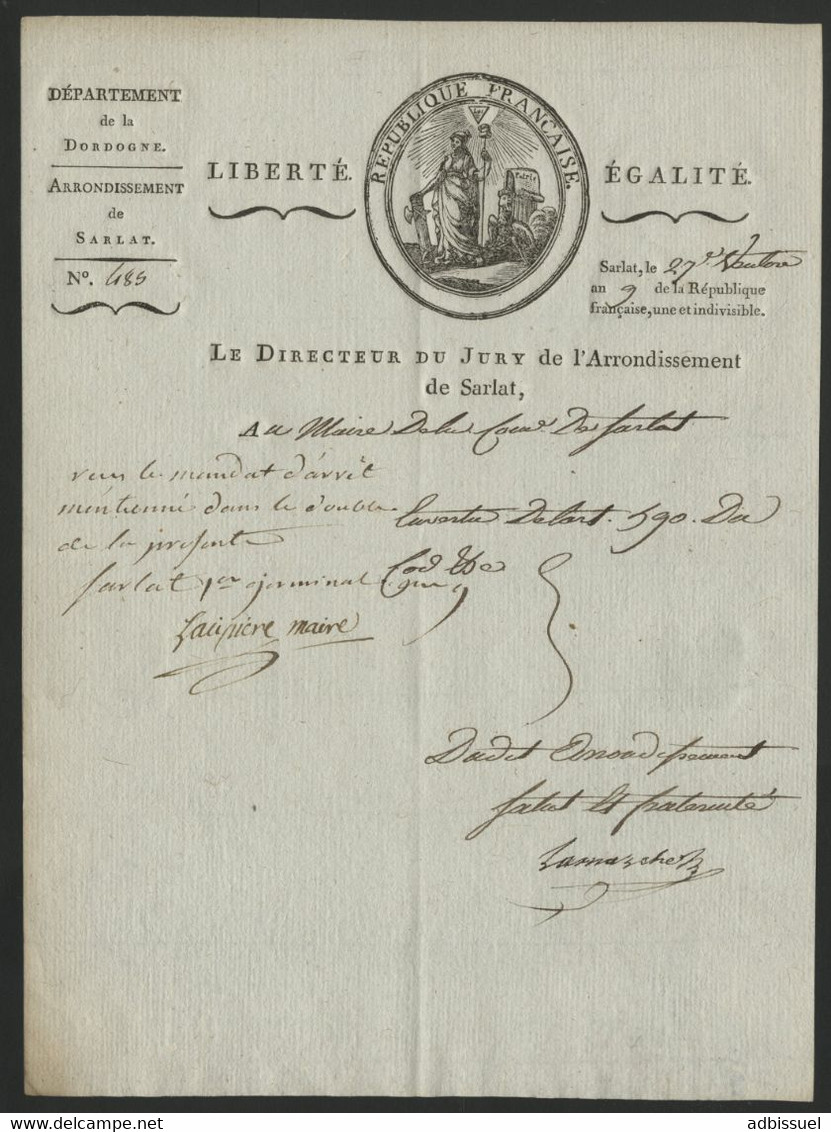 DÉPARTEMENT
de la
DORDOGNE.
ARRONDISSEMENT
de
SARLAT.
Nº. 485
LIBERTÉ.
RÉPUBLIQUE FRANÇAISE.
ÉGALITÉ.
Sarlat, le 27e. Ventose
an 9 de la République
française, une et indivisible.
LE DIRECTEUR DU JURY de l'Arrondissement
de Sarlat,
Au Maire De la Com. De Sarlat
le mandat d'arrêt
mentionné dans le double
de la presente
Sarlat 1er germinal
maire
De l'art. 590. Du
Dudit Arrondissement
Salut Et fraternité
www.delcampe.net
adbissuel